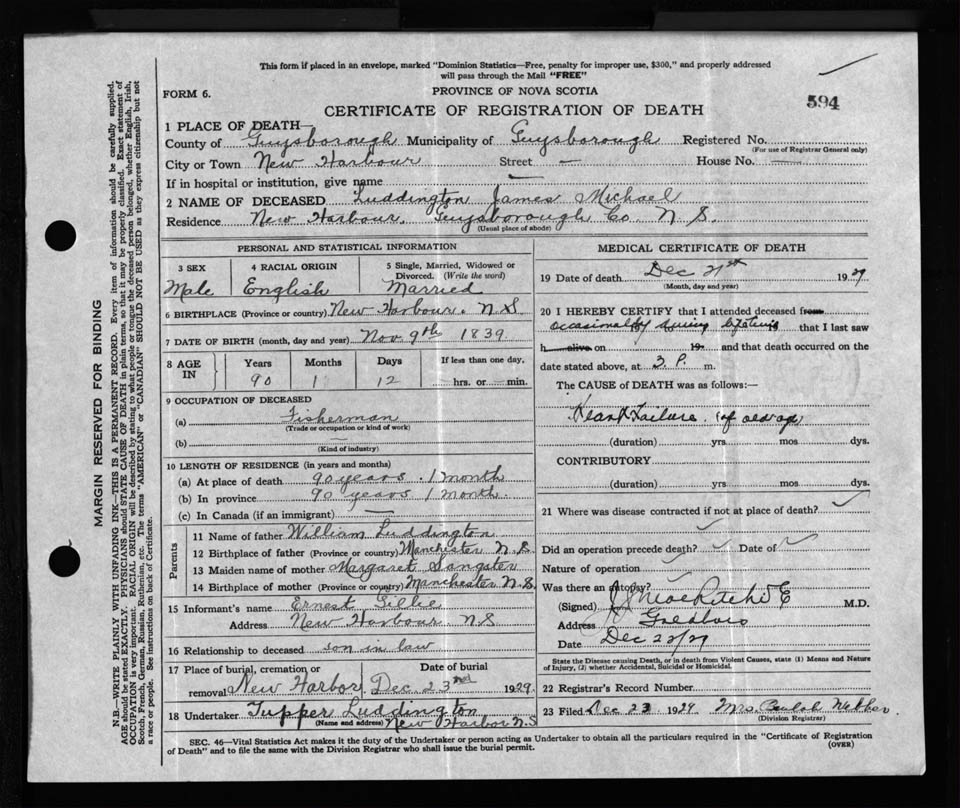 This form if placed in an envelope, marked "Dominion Statistics—Free, penalty for improper use, $300," and properly addressed
will pass through the Mail "FREE"
FORM 6.
PROVINCE OF NOVA SCOTIA
594
CERTIFICATE OF REGISTRATION OF DEATH
1 PLACE OF DEATH—
County of Guysborough Municipality of Guysborough Registered No.
(For use of Registrar General only)
City or Town New Harbour Street — House No. —
If in hospital or institution, give name —
2 NAME OF DECEASED Luddington James Michael
Residence New Harbour Guysborough Co. N. S.
(Usual place of abode)
PERSONAL AND STATISTICAL INFORMATION
3 SEX
Male
4 RACIAL ORIGIN
English
5 Single, Married, Widowed or
Divorced. (Write the word)
Married
6 BIRTHPLACE (Province or country) New Harbour. N.S
7 DATE OF BIRTH (month, day and year) Nov 9th 1839
8 AGE IN
Years Months Days If less than one day,
90 1 12 hrs. or min.
9 OCCUPATION OF DECEASED
(a) Fisherman
(Trade or occupation or kind of work)
(b) —
(Kind of industry)
10 LENGTH OF RESIDENCE (in years and months)
(a) At place of death 90 years. 1 month
(b) In province 90 years 1 month.
(c) In Canada (if an immigrant) —
Parents
11 Name of father William Luddington
12 Birthplace of father (Province or country) Manchester N.S.
13 Maiden name of mother Margaret Sangster
14 Birthplace of mother (Province or country) Manchester N.S.
15 Informant's name Ernest Gillie
Address New Harbour NS
16 Relationship to deceased son in law
17 Place of burial, cremation or Date of burial
removal New Harbor Dec. 23rd 1929.
18 Undertaker Tupper Luddington
(Name and address) New Harbor N.S
MEDICAL CERTIFICATE OF DEATH
19 Date of death Dec 21st 1929
(Month, day and year)
20 I HEREBY CERTIFY that I attended deceased from
ocasionally during that I last saw
h alive on 19 and that death occurred on the
date stated above, at 3. P. m.
The CAUSE of DEATH was as follows:—
Heart Failure of old age
(duration) yrs mos dys.
CONTRIBUTORY
(duration) yrs mos dys.
21 Where was disease contracted if not at place of death?
Did an operation precede death? Date of
Nature of operation
Was there an autopsy?
(Signed) M.D.
Address
Date Dec 23/29
State the Disease causing Death, or in death from Violent Causes, state (1) Means and Nature
of Injury, (2) whether Accidental, Suicidal or Homicidal.
22 Registrar's Record Number
23 Filed Dec 23 1929 Mrs.
(Division Registrar)
SEC. 46—Vital Statistics Act makes it the duty of the Undertaker or person acting as Undertaker to obtain all the particulars required in the "Certificate of Registration
of Death" and to file the same with the Division Registrar who shall issue the burial permit.
(OVER)
MARGIN RESERVED FOR BINDING
N.B.—WRITE PLAINLY WITH UNFADING INK—THIS IS A PERMANENT RECORD. Every item of information should be carefully supplied.
AGE should be stated EXACTLY. PHYSICIANS should STATE CAUSE OF DEATH in plain terms, so that it may be properly classified. Exact statement of
OCCUPATION is very important. RACIAL ORIGIN will be described by stating to what people or tongue the deceased person belonged, whether English, Irish,
Scotch, French, German, Russian, Ruthenian, etc. The terms "AMERICAN" or "CANADIAN" SHOULD NOT BE USED as they express citizenship but not
a race or people. See instructions on back of Certificate.